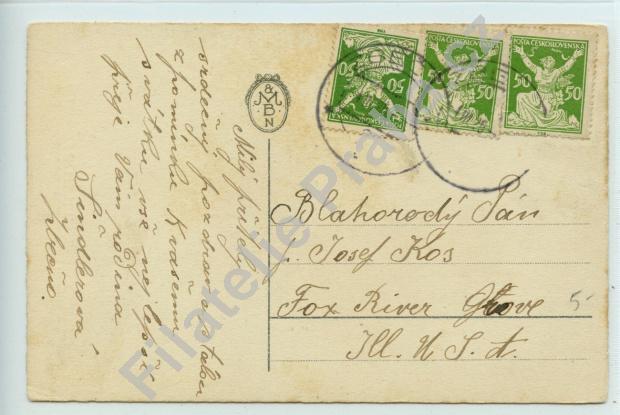 Milý příteli
srdečný pozdrav s tatou
z pomínka k vašemu
svátku vše nej lepší
přeje Vám rodina
Šindlerová
M
&
B
N
50
POŠTA ČESKOSLOVENSKA
50
50
POŠTA ČESKOSLOVENSKÁ
50
50
POŠTA ČESKOSLOVENSKÁ
50
50
Blahorodý Pán
Josef Kos
Fox River Grove
Ill. U.S.A.
5
Filatelie Praha.cz